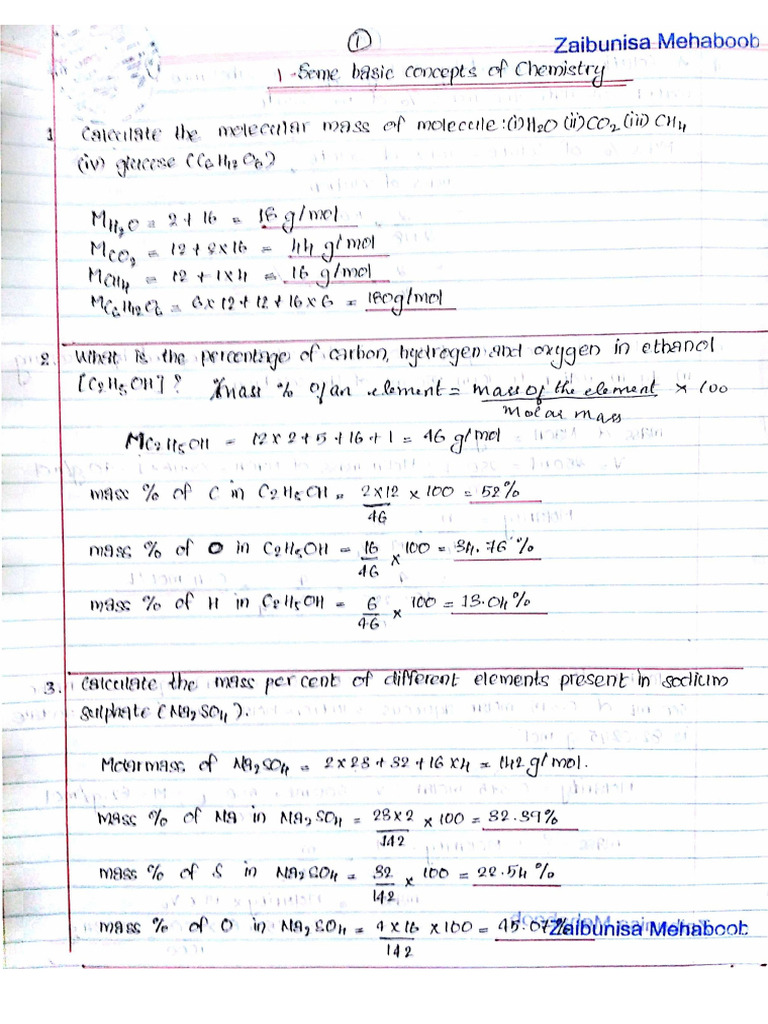 ①
Zaibunisa Mehaboob
1 - Some basic concepts of Chemistry
1 Calculate the molecular mass of molecule :(i) H2O (ii) CO2 (iii) CH4
(iv) glucose (C6H12O6)
MH2O = 2 + 16 = 18 g/mol
MCO2 = 12 + 2 x 16 = 44 g/mol
MCH4 = 12 + 1 x 4 = 16 g/mol
MC6H12O6 = 6 x 12 + 12 + 16 x 6 = 180 g/mol
2. What is the percentage of carbon, hydrogen and oxygen in ethanol
[C2H5OH] ? mass % of an element = mass of the element / Molar mass x 100
MC2H5OH = 12 x 2 + 5 + 16 + 1 = 46 g/mol
mass % of C in C2H5OH = 2 x 12 / 46 x 100 = 52 %
mass % of O in C2H5OH = 16 / 46 x 100 = 34.76 %
mass % of H in C2H5OH = 6 / 46 x 100 = 13.04 %
3. Calculate the mass per cent of different elements present in sodium
sulphate (Na2SO4).
Molar mass of Na2SO4 = 2 x 23 + 32 + 16 x 4 = 142 g/mol.
mass % of Na in Na2SO4 = 23 x 2 / 142 x 100 = 32.39%
mass % of S in Na2SO4 = 32 / 142 x 100 = 22.54 %
mass % of O in Na2SO4 = 4 x 16 / 142 x 100 = 45.07%
Zaibunisa Mehaboob